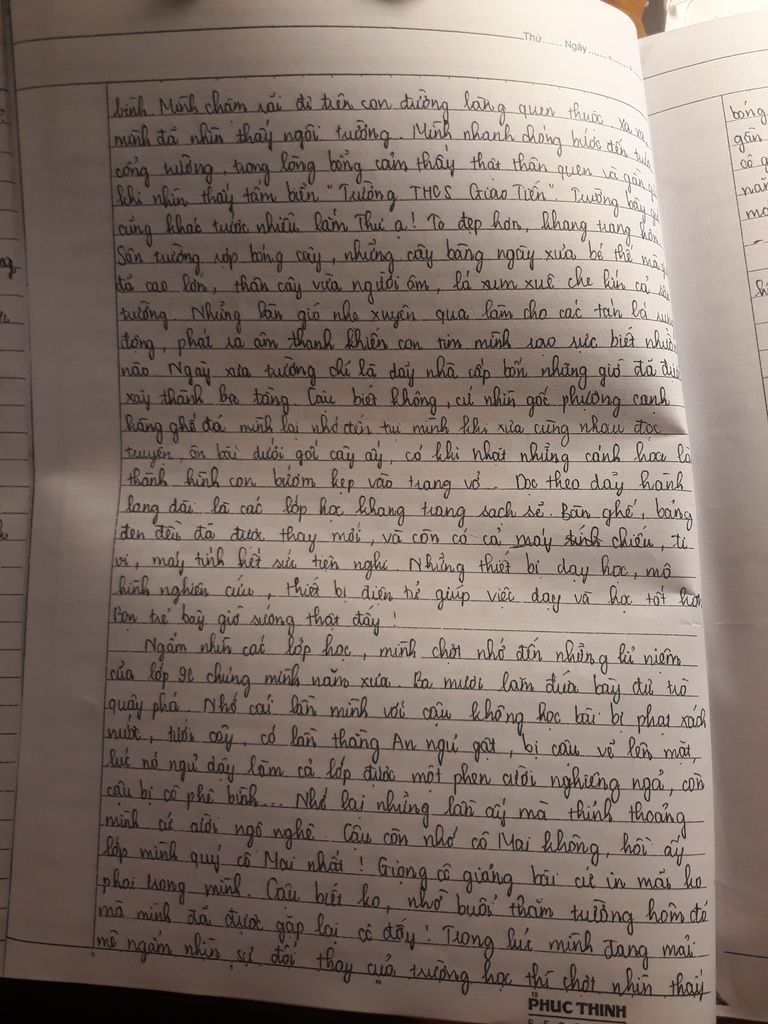 Thứ....... Ngày.......
bình. Mình chậm rãi đi trên con đường làng quen thuộc xa xa
mình đã nhìn thấy ngôi trường. Mình nhanh chóng bước đến trước
cổng trường, trong lòng bỗng cảm thấy thật thân quen và gần gũi
khi nhìn thấy tấm biển "Trường THCS Giao Tiến". Trường bây giờ
cũng khác trước nhiều lắm Thư ạ! To đẹp hơn, khang trang hơn
Sân trường rợp bóng cây, những cây bàng ngày xưa bé thế mà
đã cao lớn, thân cây vừa người ôm, lá xum xuê che kín cả sân
trường. Những làn gió nhẹ xuyên qua làm cho các tán lá rung
động, phát ra âm thanh khiến con tim mình xao xực biết nhường
nào Ngày xưa trường chỉ là dãy nhà cấp bốn nhưng giờ đã được
xây thành ba tầng. Cậu biết không, cứ nhìn gốc phượng cạnh
hàng ghế đá mình lại nhớ đến tụi mình khi xưa cùng nhau đọc
truyện, ôn bài dưới gốc cây ấy, có khi nhặt những cánh hoa là
thành hình con bướm kẹp vào trang vở. Dọc theo dãy hành
lang dài là các lớp học khang trang sạch sẽ. Bàn ghế, bảng
đen đều đã được thay mới, và còn có cả máy chiếu, ti
vi, máy tính hết sức tiện nghi. Những thiết bị dạy học, mô
hình nghiên cứu, thiết bị điện tử giúp việc dạy và học tốt hơn
Bọn trẻ bây giờ sướng thật đấy!
Ngắm nhìn các lớp học, mình chợt nhớ đến những kỉ niệm
của lớp 9C chúng mình năm xưa. Ba mươi lăm đứa bày đủ trò
quậy phá. Nhớ cái lần mình với cậu không học bài bị phạt xách
nước, tưới cây, có lần thằng An ngủ gật, bị cậu vẽ lên mặt,
lúc nó ngủ dậy làm cả lớp được một phen cười nghiêng ngả, còn
cậu bị cô phê bình... Nhớ lại những lần ấy mà thỉnh thoảng
mình cứ cười ngô nghê. Cậu còn nhớ cô Mai không, hồi ấy
lớp mình quý cô Mai nhất! Giọng cô giảng bài cứ in mãi ko
phai trong mình. Cậu biết ko, nhờ buổi thăm trường hôm đó
mà mình đã được gặp lại cô đấy! Trong lúc mình đang mải
mê ngắm nhìn sự đổi thay của trường học thì chợt nhìn thấy
PHUC THINH
bóng
gần
cô g